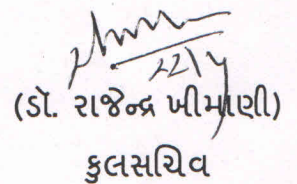 22/4
(ડૉ. રાજેન્દ્ર ખીમાણી)
કુલસચિવ